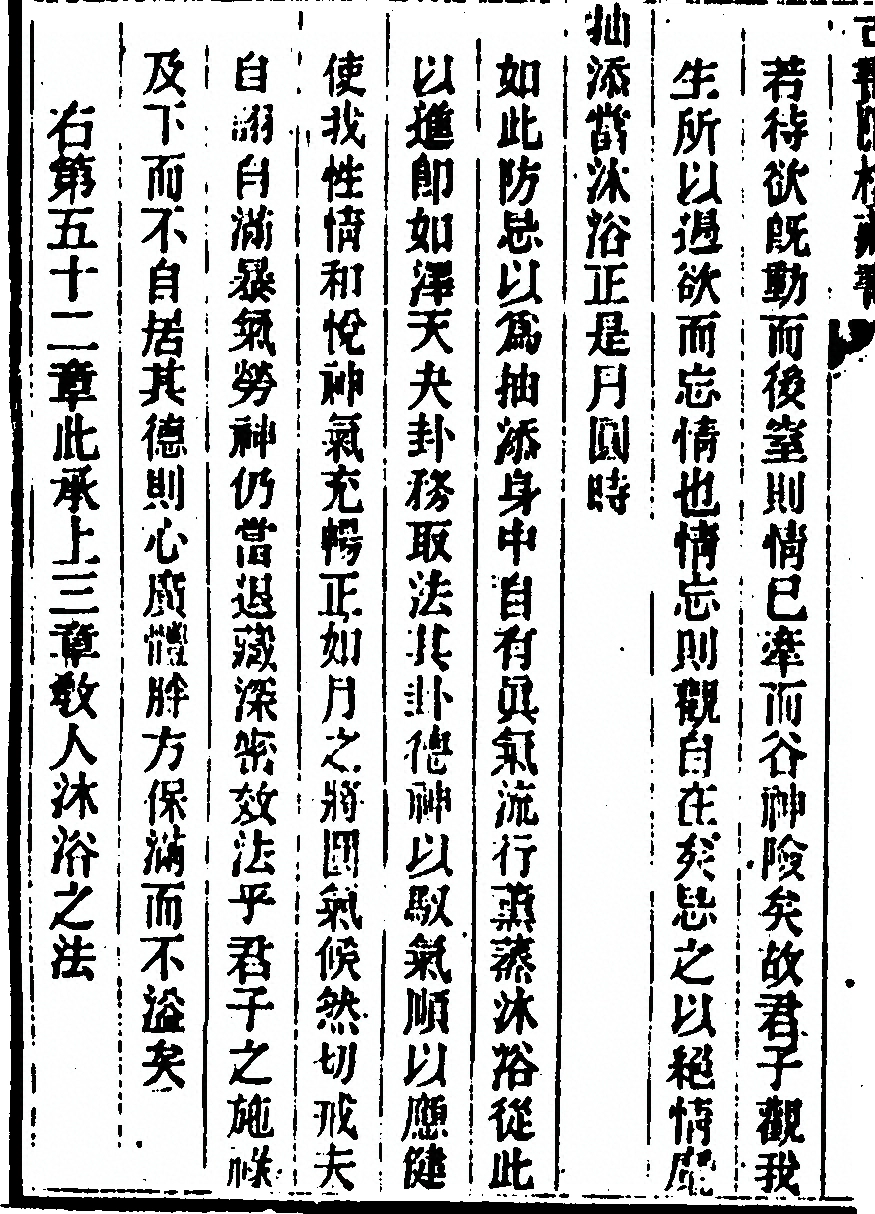 若待欲既動而後窒則情已牽而谷神險矣故君子觀我
生所以遏欲而忘情也情忘則觀自在矣忌之以絕情塵
抽添當沐浴正是月圓時
如此防忌以爲抽添身中自有眞氣流行薰蒸沐浴從此
以進卽如澤天夬卦務取法其卦德神以馭氣順以應健
使我性情和悅神氣充暢正如月之將圓氣候然切戒夫
自詡自滿暴氣勞神仍當退藏深密效法乎君子之施祿
及下而不自居其德則心廣體胖方保滿而不溢矣
右第五十二章此承上三章敎人沐浴之法